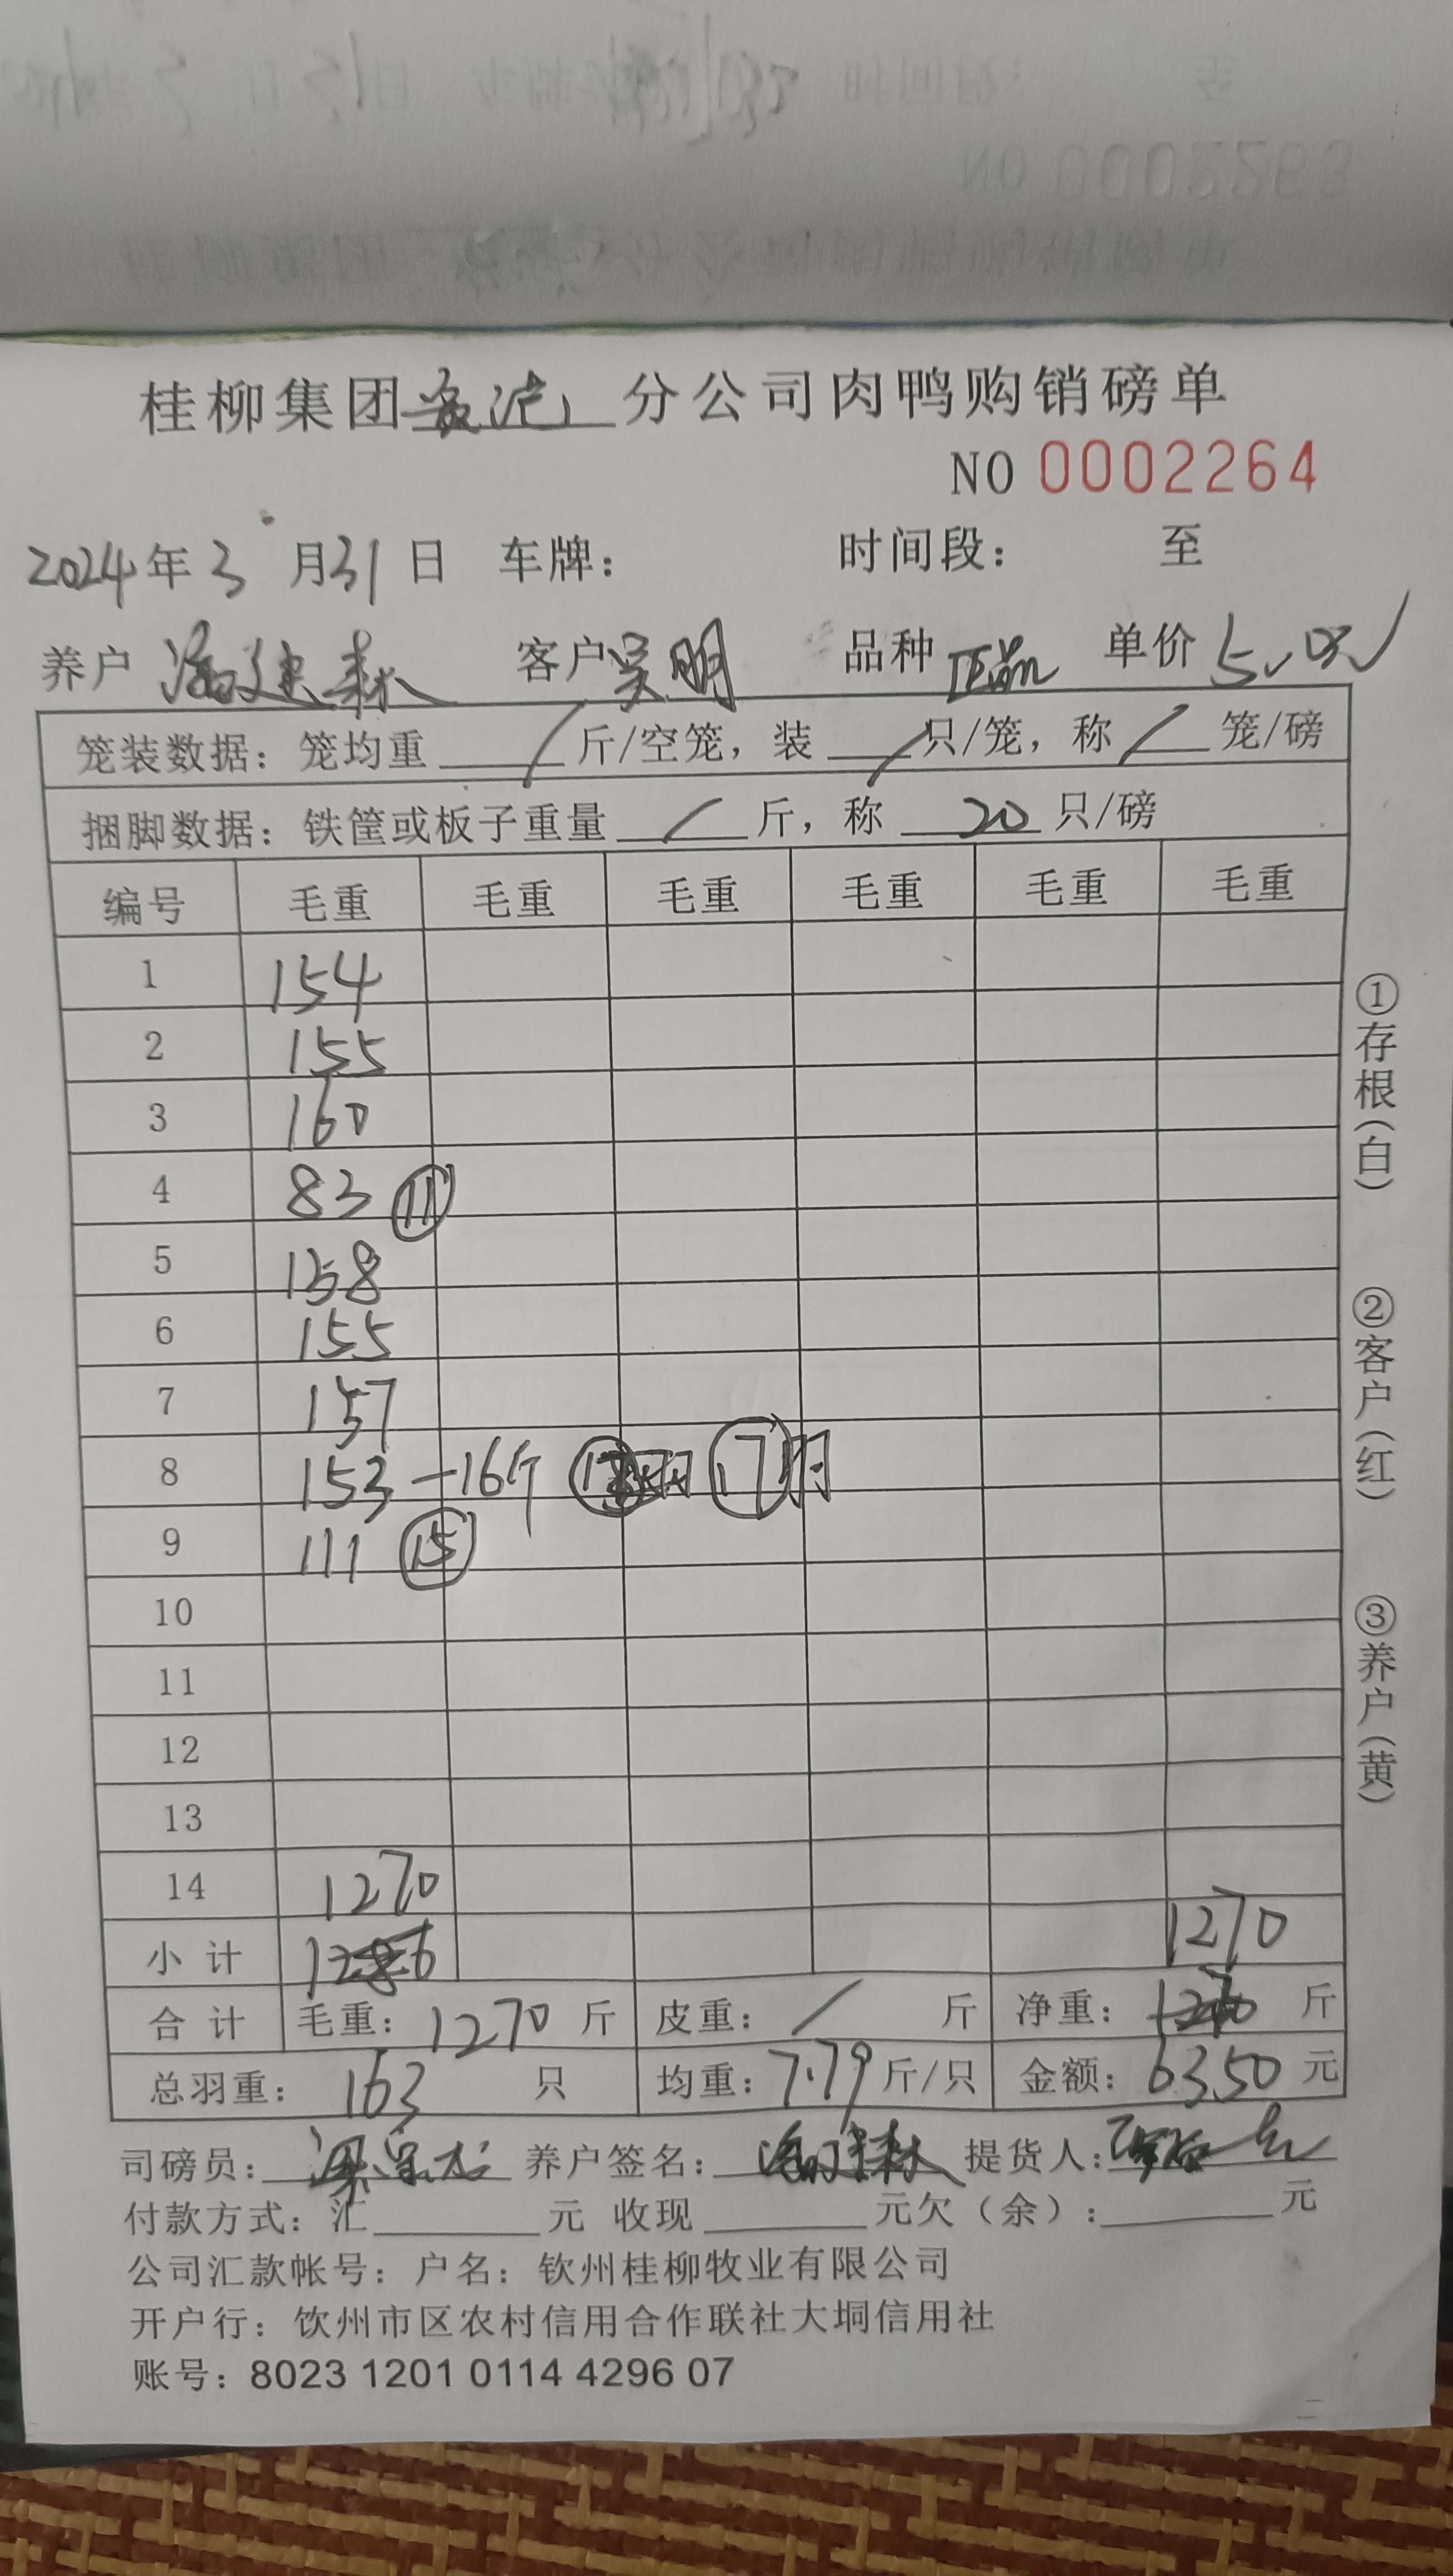 桂柳集团 分公司肉鸭购销磅单
NO 0002264
2024年3月31日 车牌： 时间段： 至
养户 潘建森 客户 吴明 品种 正品 单价 5.00
笼装数据：笼均重 / 斤/空笼，装 / 只/笼，称 / 笼/磅
捆脚数据：铁筐或板子重量 / 斤，称 20 只/磅
编号 毛重 毛重 毛重 毛重 毛重 毛重
1 154
2 155
3 160
4 83 ⑪
5 158
6 155
7 157
8 153 -16斤 ⑰
9 111 ⑮
10
11
12
13
14 1270
小计 1286 1270
合计 毛重：1270 斤 皮重：/ 斤 净重：1270 斤
总羽重：163 只 均重：7.79 斤/只 金额：6350 元
司磅员： 养户签名：潘建森 提货人：
付款方式：汇 元 收现 元欠（余）： 元
公司汇款帐号：户名：钦州桂柳牧业有限公司
开户行：饮州市区农村信用合作联社大垌信用社
账号：8023 1201 0114 4296 07
①存根（白）
②客户（红）
③养户（黄）
NO 0002263